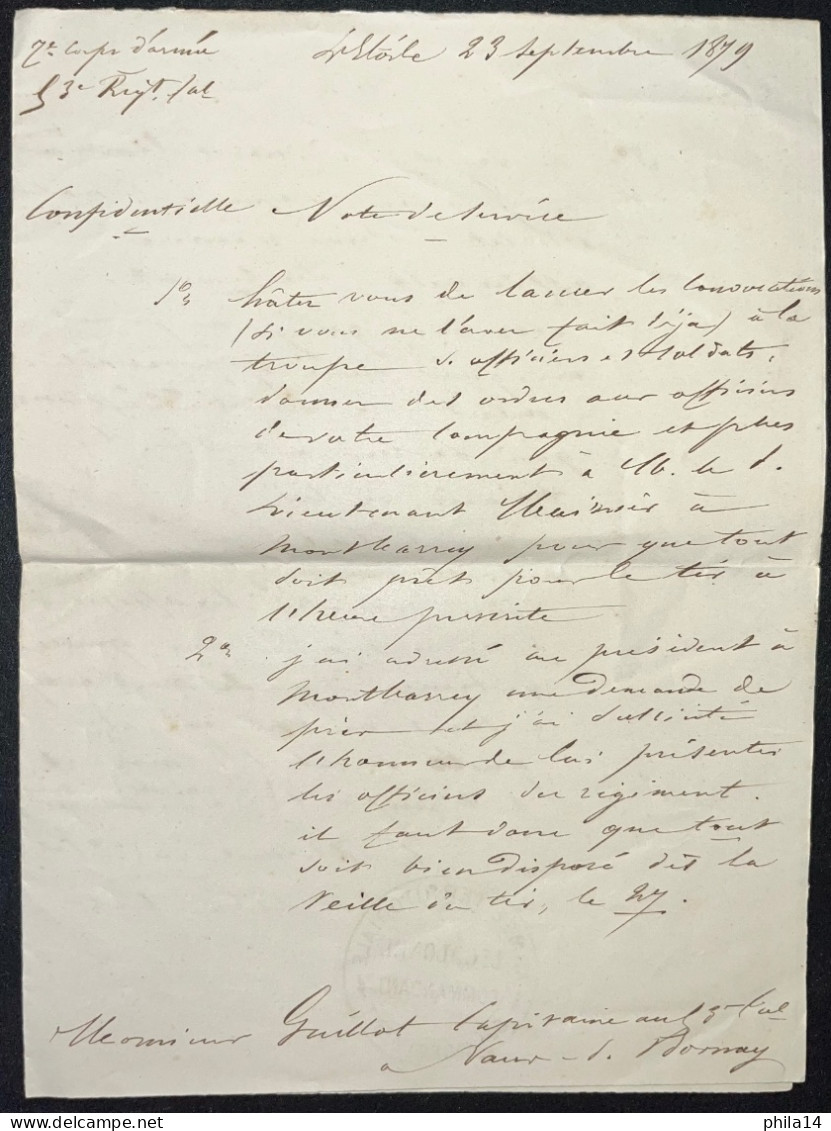 7e corps d'armée
L'Etoile 23 Septembre 1879
53e Regt. tal
Confidentielle Note de Service
1o hâtez vous de lancer les convocations
(si vous ne l'avez fait déja) à la
troupe s. officiers et soldats,
donner des ordres aux officiers
de votre Compagnie et plus
particulierement à M. le s.
Lieutenant à
Montbarrey pour que tout
soit prêt pour le tir à
l'heure prescrite
2o j'ai adressé au président à
Montbarrey une demande de
et j'ai sollicité
l'honneur de lui présenter
les officiers du régiment.
il faut donc que tout
soit bien disposé dès la
veille du tir, le 27.
Monsieur Guillot Capitaine au 53e tal
a Vaux-s. Bornay
philea14